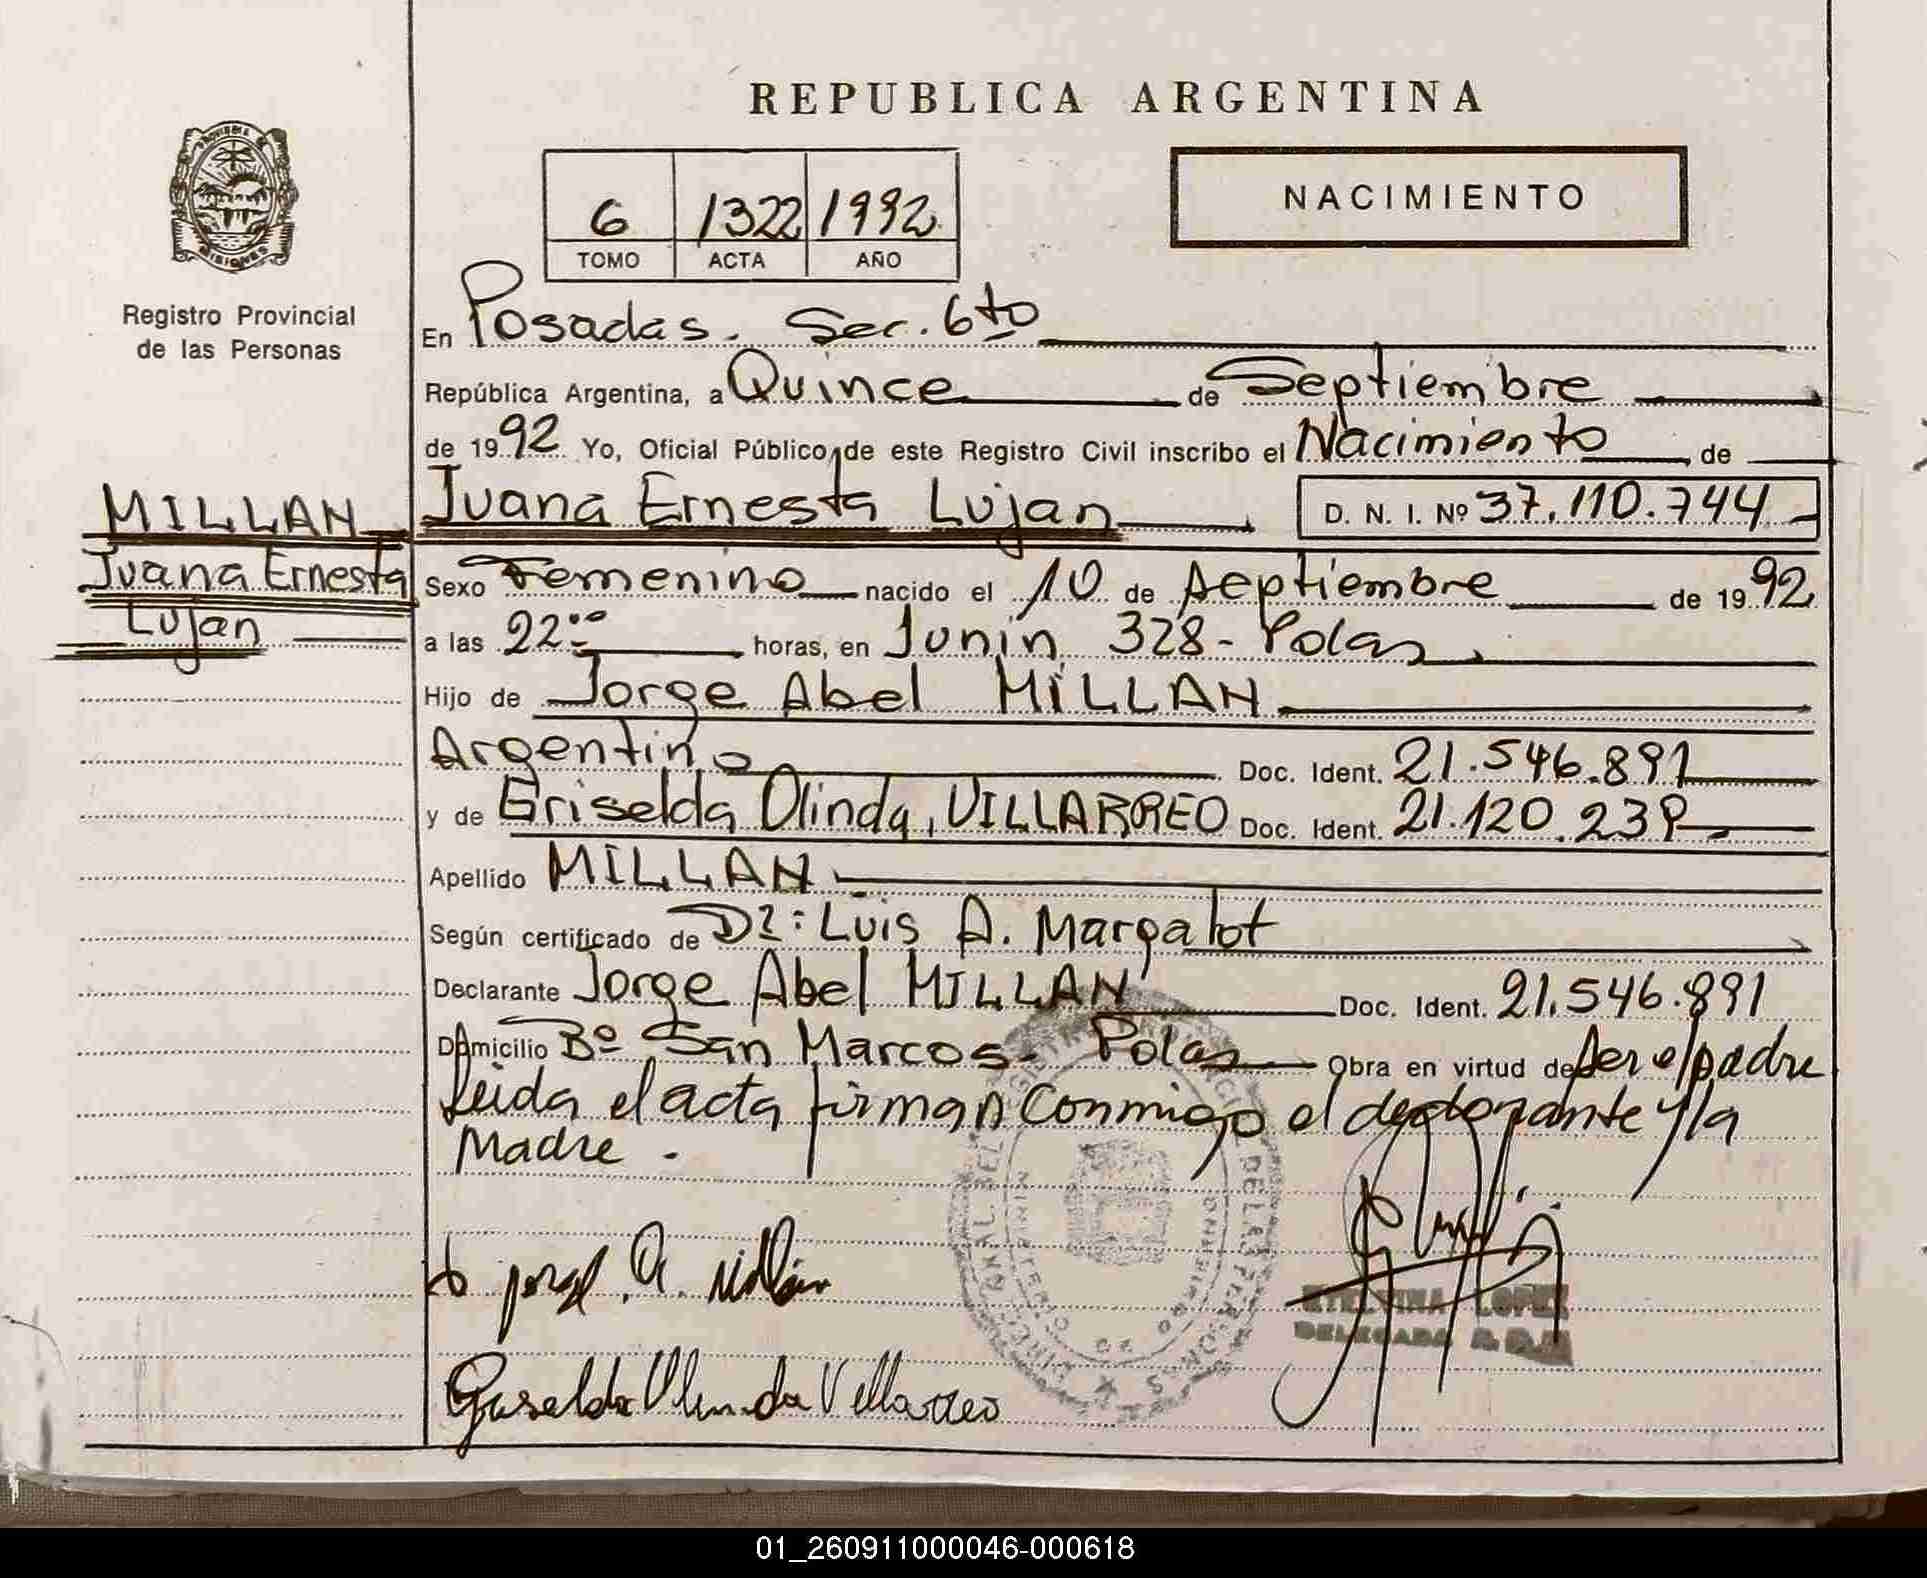 REPUBLICA ARGENTINA
NACIMIENTO
6 1322 1992
TOMO ACTA AÑO
MISIONES
Registro Provincial
de las Personas
En Posadas. Sec. 6to
República Argentina, a Quince de Septiembre
de 1992 Yo, Oficial Público de este Registro Civil inscribo el Nacimiento de
MILLAN
Juana Ernesta
Lujan
Juana Ernesta Lujan D. N. I. Nº 37.110.744
Sexo Femenino nacido el 10 de septiembre de 1992
a las 22 horas, en Junin 328 - Pdas
Hijo de Jorge Abel MILLAN
Argentino Doc. Ident. 21.546.891
y de Griselda Olinda, VILLARREO Doc. Ident. 21.120.239
Apellido MILLAN
Según certificado de Dr: Luis A. Margalot
Declarante Jorge Abel MILLAN Doc. Ident. 21.546.891
Domicilio Bº San Marcos - Pdas Obra en virtud de ser el padre
Leida el acta firman conmigo el declarante y la
Madre.
Jorge A. Millan
Griselda Olinda Villarreo
LOPEZ
DELEGADA
01_260911000046-000618